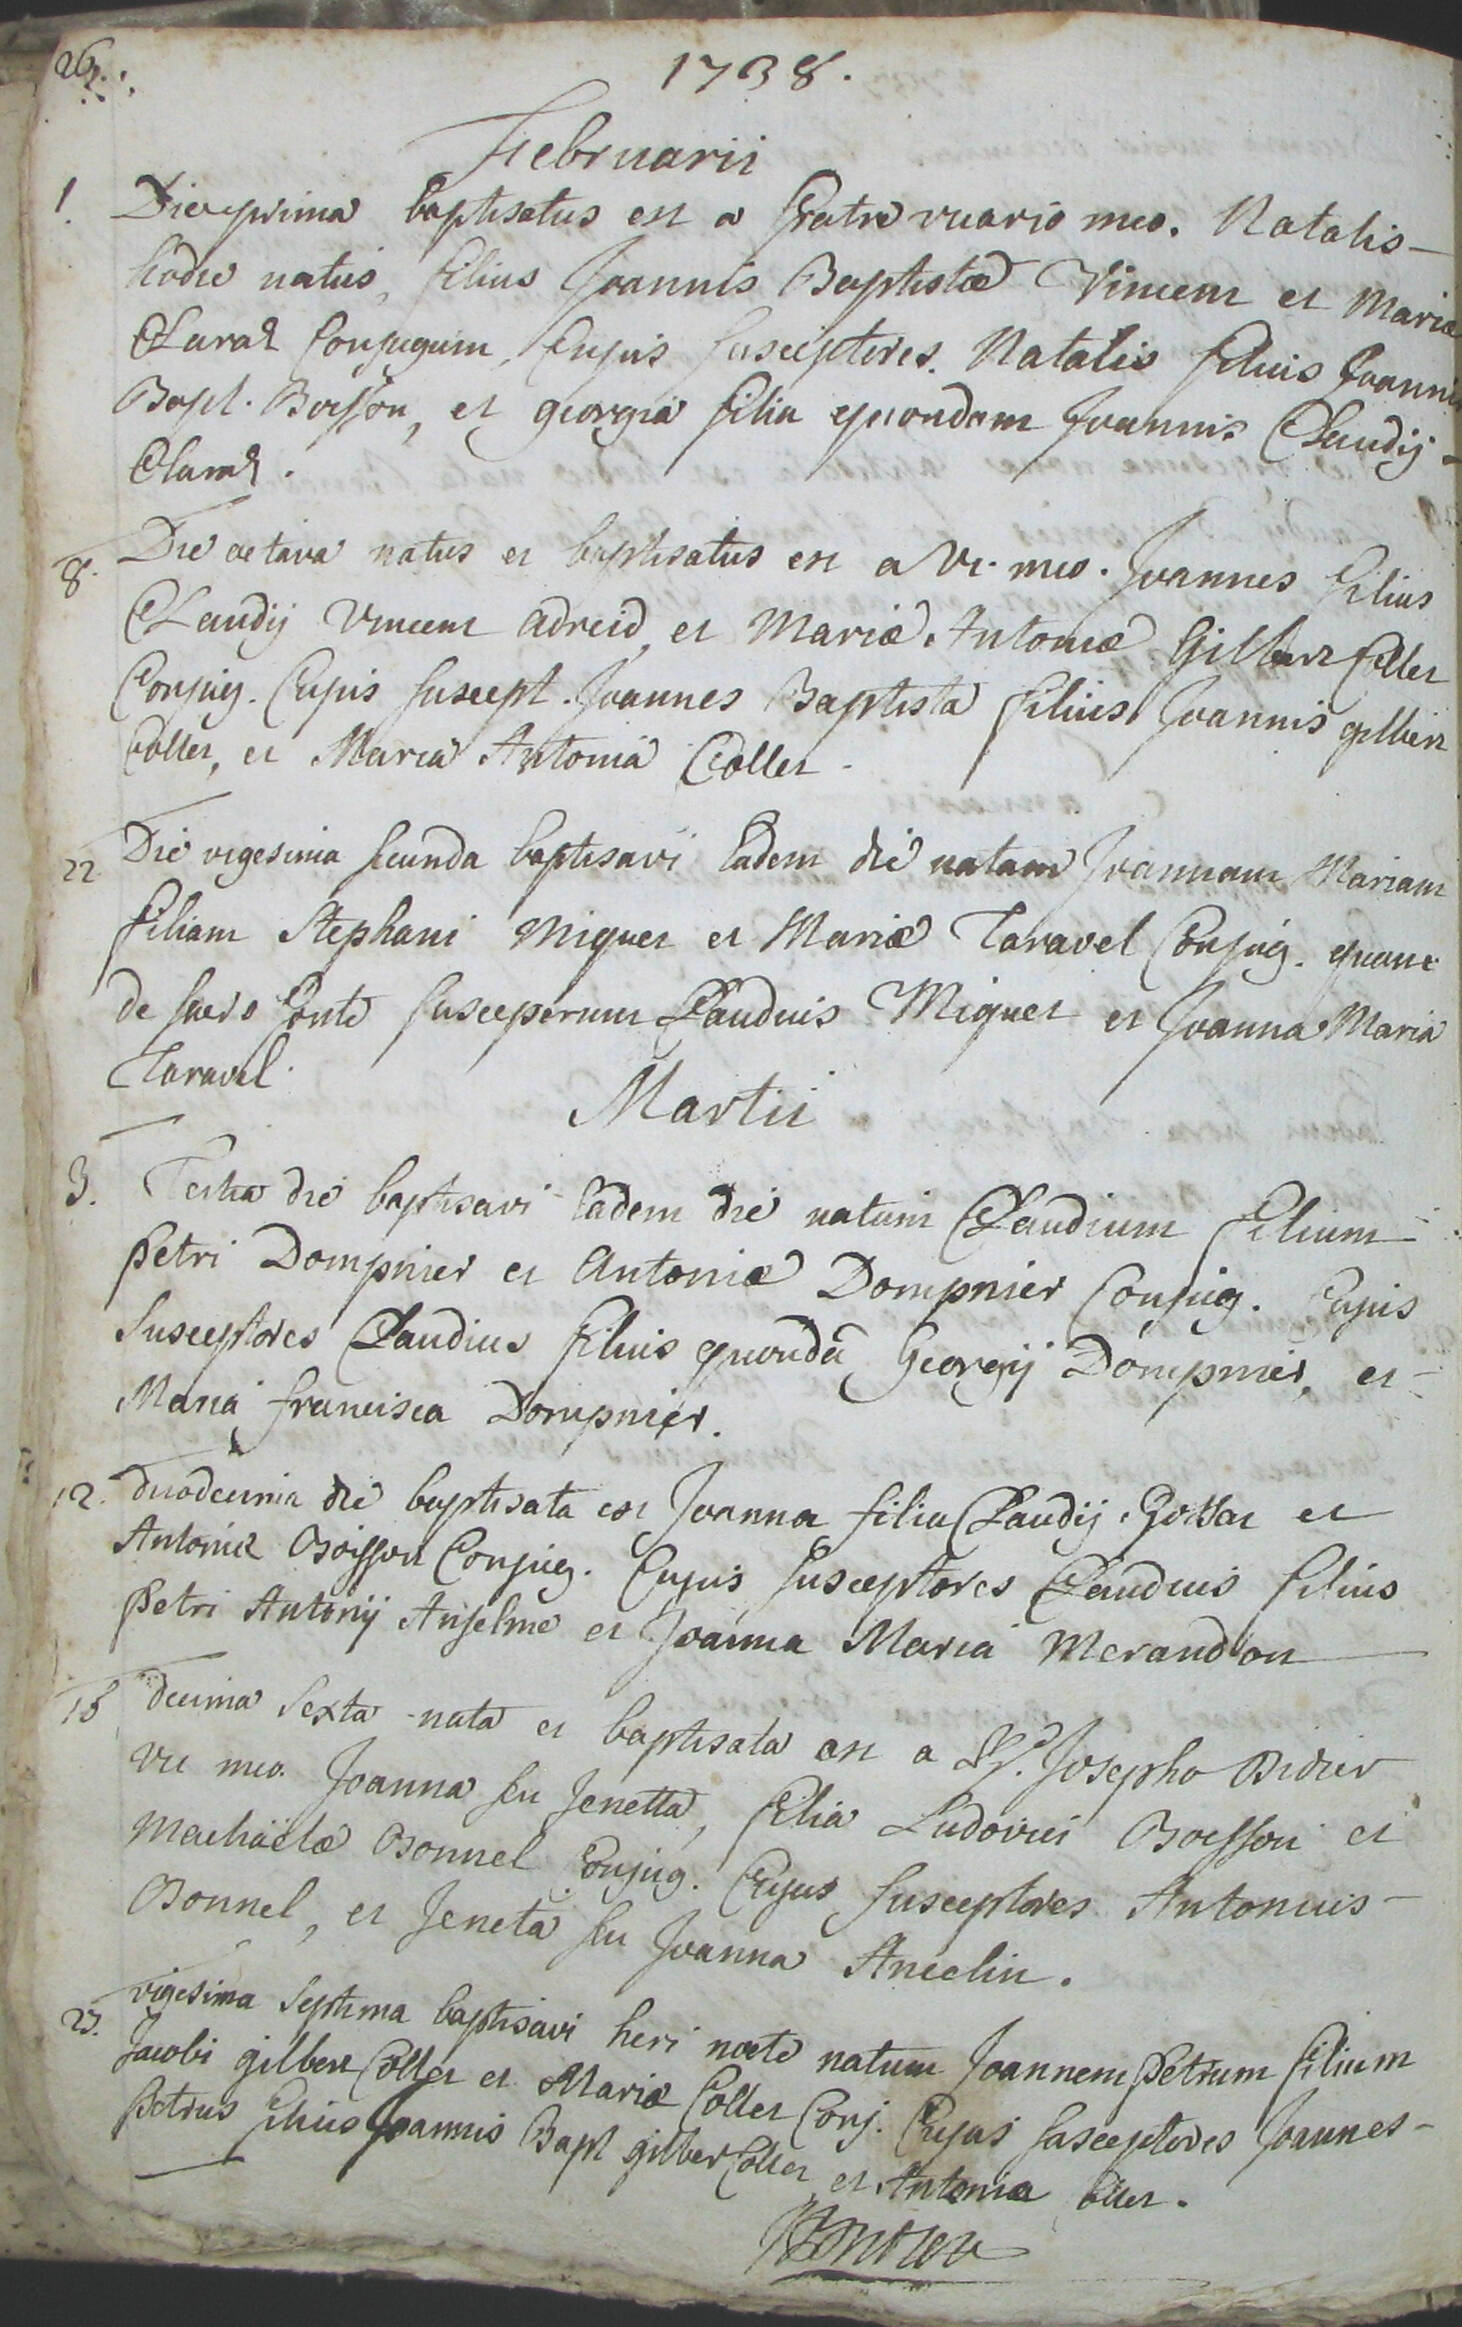 26
1738.
Februarii
1. Die prima baptisatus est a fratre vicario meo. Natalis
hodie natus, filius Joannis Baptistæ Vincent et Mariæ
Claraz Conjugum, Cujus susceptores. Natalis filius Joannis
Bapt. Boisson, et georgia filia quondam Joannis Claudij
Claraz.
8. Die octava natus et baptisatus est a Vic. meo. Joannes filius
Claudij Vincent Adreid, et Mariæ Antoniæ Gilbert Collet
Conjug. Cujus suscept. Joannes Baptista filius Joannis gilbert
Collet, et Maria Antonia Collet.
22 Die vigesima secunda baptisavi Eadem die natam Joannam Mariam
filiam Stephani Miguet et Mariæ Taravel Conjug. quam
de sacro fonte susceperunt Claudius Miguet et Joanna Maria
Taravel.
Martii
3. Tertia die baptisavi Eadem die natum Claudium filium
Petri Dompnier et Antoniæ Dompnier Conjug. Cujus
Susceptores Claudius filius quondã Georgij Dompnier, et
Maria francisca Dompnier.
12. duodecima die baptisata est Joanna filia Claudij et
Antoniæ Boisson Conjug. Cujus susceptores Claudius filius
Petri Antonij Anselme et Joanna Maria Merandon
16 decima Sexta nata et baptisata est a Rd. Josepho Didier
vic meo. Joanna seu Jenetta, filia Ludovici Boisson et
Michaelæ Bonnel Conjug. Cujus susceptores Antonius
Bonnel, et Jeneta seu Joanna Ancelin.
27. vigesima septima baptisavi heri nocte natum Joannem Petrum filium
Jacobi gilbert Collet et Mariæ Collet Conj. Cujus susceptores Joannes
Petrus filius Joannis Bapt gilbert Collet et Antonia Collet.